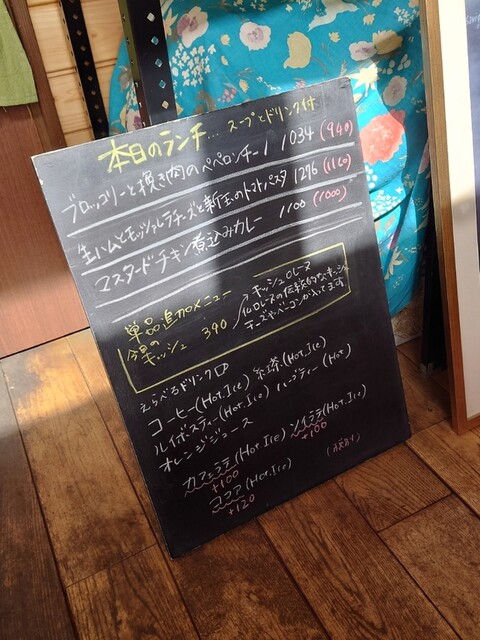 本日のランチ... スープとドリンク付
ブロッコリーと挽き肉のペペロンチーノ 1034 (940)
生ハムとモッツァレラチーズと新玉のトマトパスタ 1276 (1160)
マスタードチキン煮込みカレー 1100 (1000)
単品追加メニュー
今週の
キッシュ 390
キッシュロレーヌ
仏ロレーヌの伝統的なキッシュ
チーズやベーコンが入ってます
えらべるドリンク
コーヒー(Hot.Ice) 紅茶(Hot.Ice)
ルイボスティー(Hot.Ice) ハーブティー(Hot)
オレンジジュース
カフェラテ(Hot.Ice) ソイラテ(Hot.Ice)
+100 +100
ココア(Hot.Ice)
+120